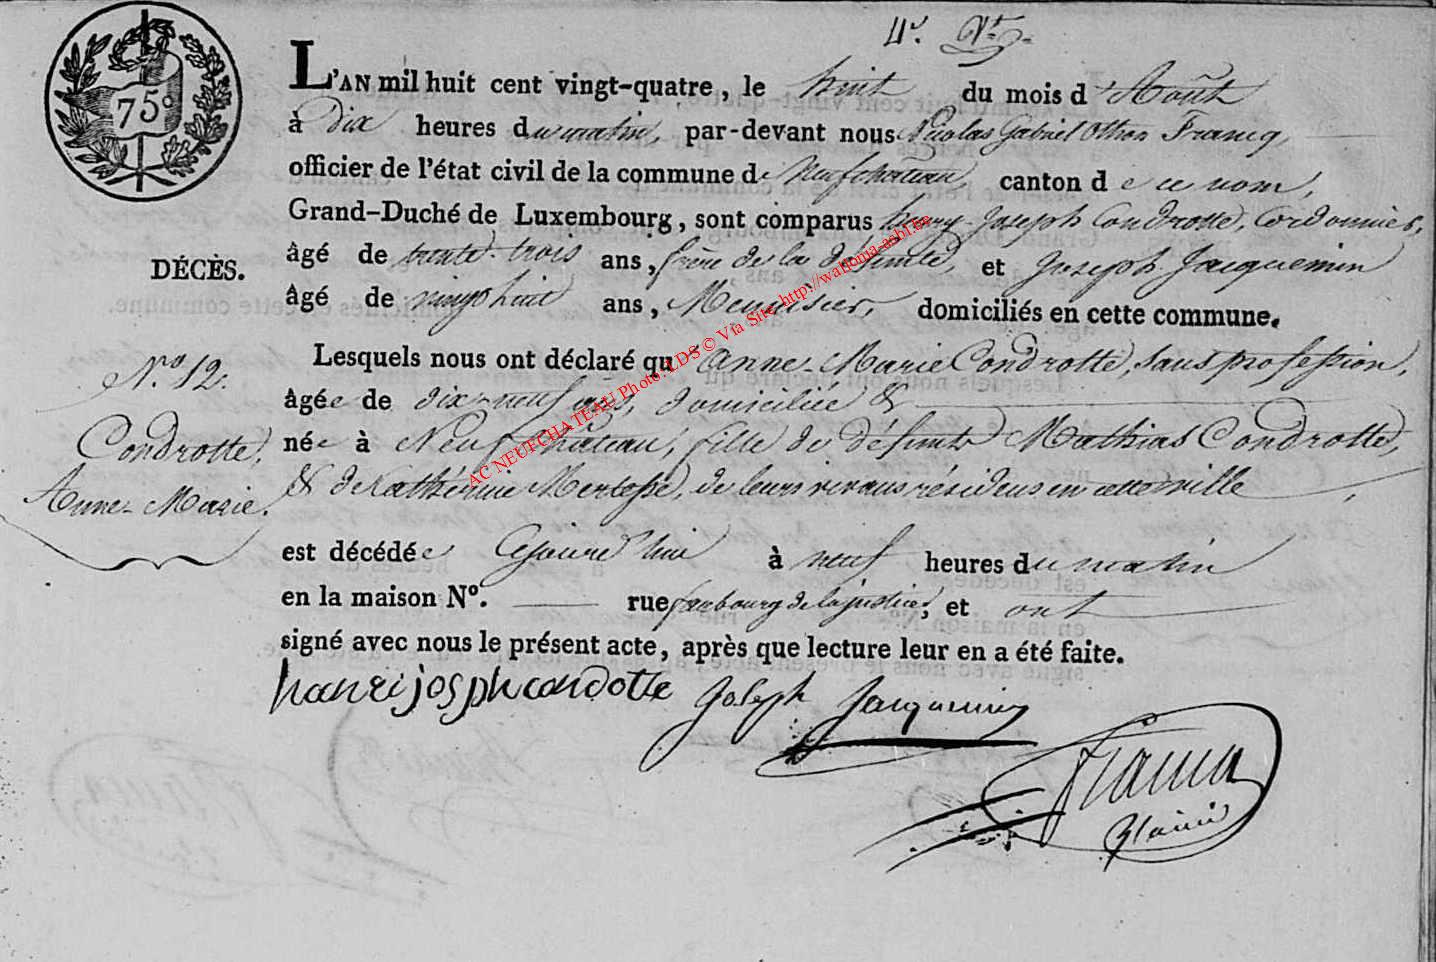 75c
L'AN mil huit cent vingt-quatre, le huit du mois d'Août
à Dix heures du matin, par-devant nous Nicolas Gabriel Othon Francq,
officier de l'état civil de la commune de Neufchâteau, canton de ce nom,
Grand-Duché de Luxembourg, sont comparus henry-Joseph Condrotte, Cordonnier,
DÉCÈS.
âgé de trente-trois ans, frère de la défunte, et Joseph Jacquemin
âgé de vingt huit ans, Menuisier, domiciliés en cette commune.
N.o 12.
Condrotte,
Anne-Marie.
Lesquels nous ont déclaré qu'Anne-Marie Condrotte, sans profession,
âgée de dix-neuf ans, domiciliée &
née à Neufchâteau, fille de défunts Mathias Condrotte,
& de Cathérine de leurs vivans résidens en cette ville,
est décédée Cejourd'hui à neuf heures du matin
en la maison No. rue faubourg de la justice, et ont
signé avec nous le présent acte, après que lecture leur en a été faite.
hanrijosphcondotte Joseph Jacquemin
AC NEUFCHATEAU Photo: LDS © Via Site http://wallonia-asbl.be